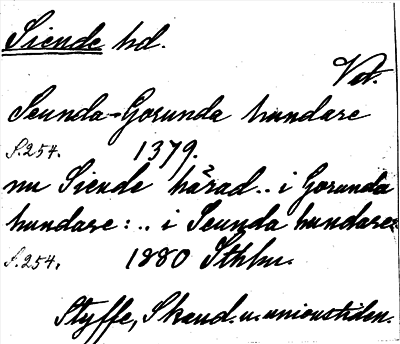 Siende hd.
Vd.
Seunda-Gorunda hundare
S.254. 1379.
nu Siende härad.. i Gorunda
hundare: .. i Seunda hundare
S.254. 1880 Sthlm.
Styffe, Skand. u. unionstiden.